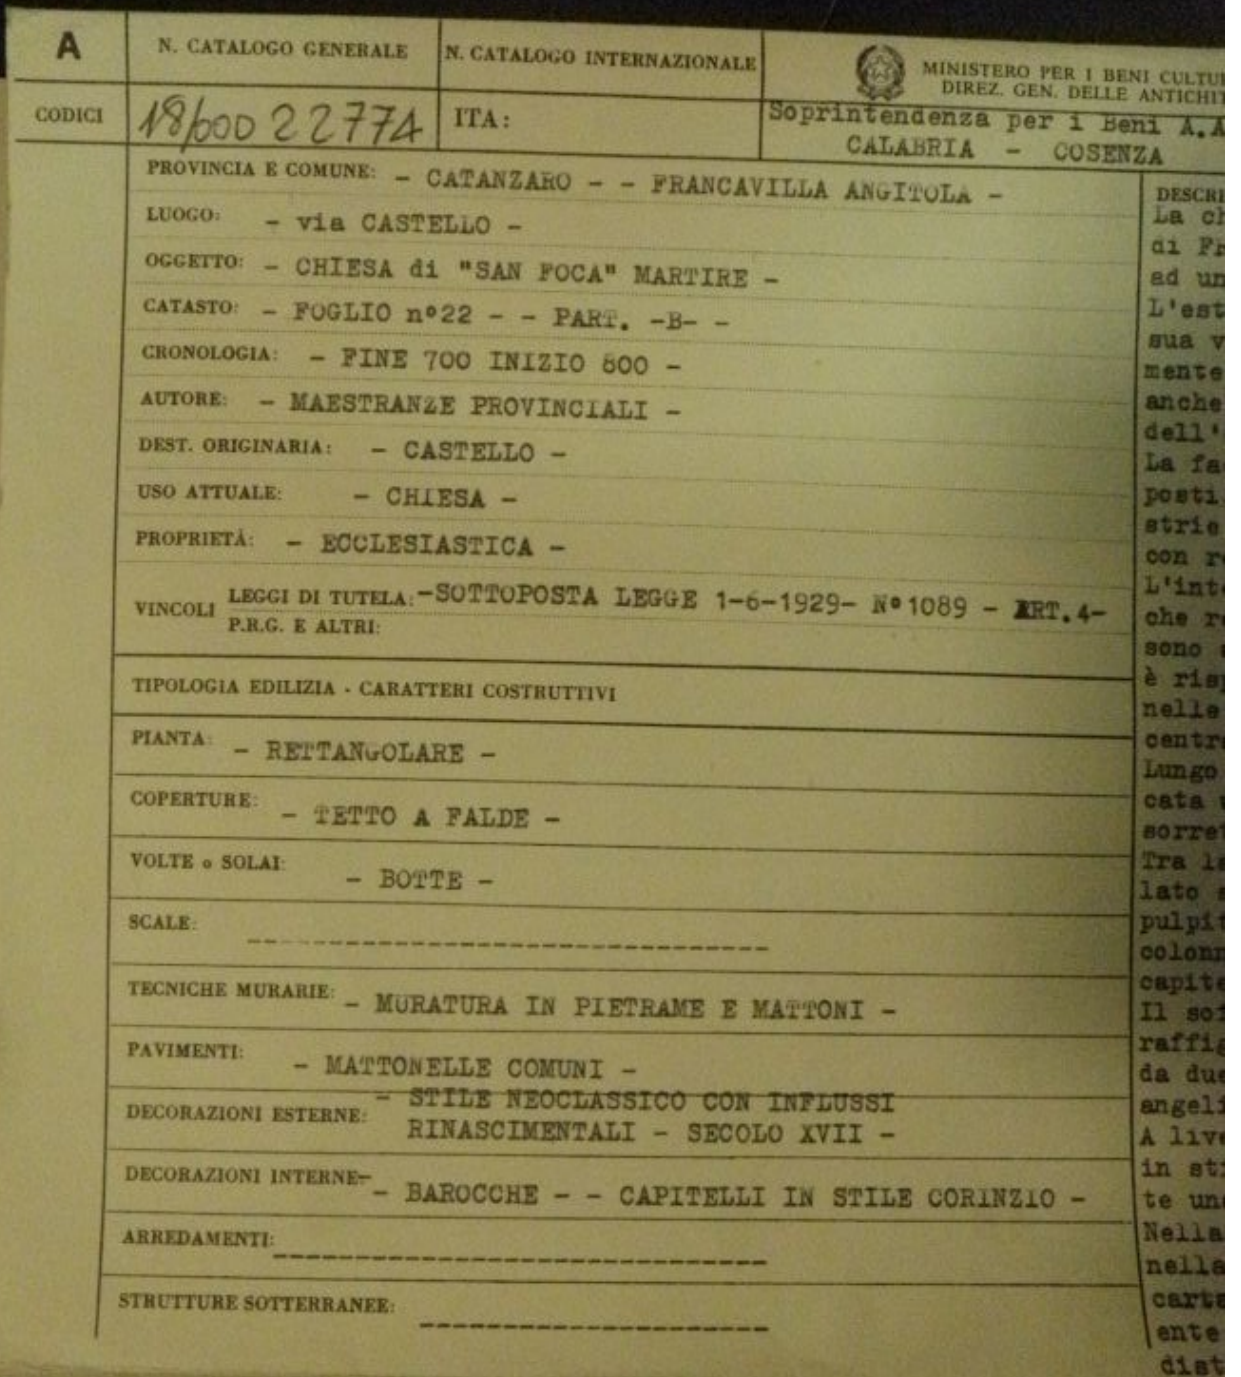 A
N. CATALOGO GENERALE
N. CATALOGO INTERNAZIONALE
MINISTERO PER I BENI
DIREZ. GEN. DELLE
CODICI
18/00022774
ITA:
Soprintendenza per i Beni A.A
CALABRIA - COSENZA
PROVINCIA E COMUNE: - CATANZARO - - FRANCAVILLA ANGITOLA -
LUOGO: - via CASTELLO -
OGGETTO: - CHIESA di "SAN FOCA" MARTIRE -
CATASTO: - FOGLIO n°22 - - PART. -B- -
CRONOLOGIA: - FINE 700 INIZIO 800 -
AUTORE: - MAESTRANZE PROVINCIALI -
DEST. ORIGINARIA: - CASTELLO -
USO ATTUALE: - CHIESA -
PROPRIETÀ: - ECCLESIASTICA -
VINCOLI
LEGGI DI TUTELA: -SOTTOPOSTA LEGGE 1-6-1929- N°1089 - ART.4-
P.R.G. E ALTRI:
TIPOLOGIA EDILIZIA - CARATTERI COSTRUTTIVI
PIANTA: - RETTANGOLARE -
COPERTURE: - TETTO A FALDE -
VOLTE o SOLAI: - BOTTE -
SCALE: ------------------------------
TECNICHE MURARIE: - MURATURA IN PIETRAME E MATTONI -
PAVIMENTI: - MATTONELLE COMUNI -
DECORAZIONI ESTERNE: - STILE NEOCLASSICO CON INFLUSSI
RINASCIMENTALI - SECOLO XVII -
DECORAZIONI INTERNE- - BAROCCHE - - CAPITELLI IN STILE CORINZIO -
ARREDAMENTI: -----------------------------
STRUTTURE SOTTERRANEE: --------------------
La
di
ad
L'est
sua
mente
anche
dell'
La
posti
strie
con
L'inte
che
sono
è
nelle
centr
Lungo
cata
sorret
Tra
lato
pulpit
colonn
capite
Il
raffig
da due
angeli
A
in
te
Nella
nella
carta
ente
dist